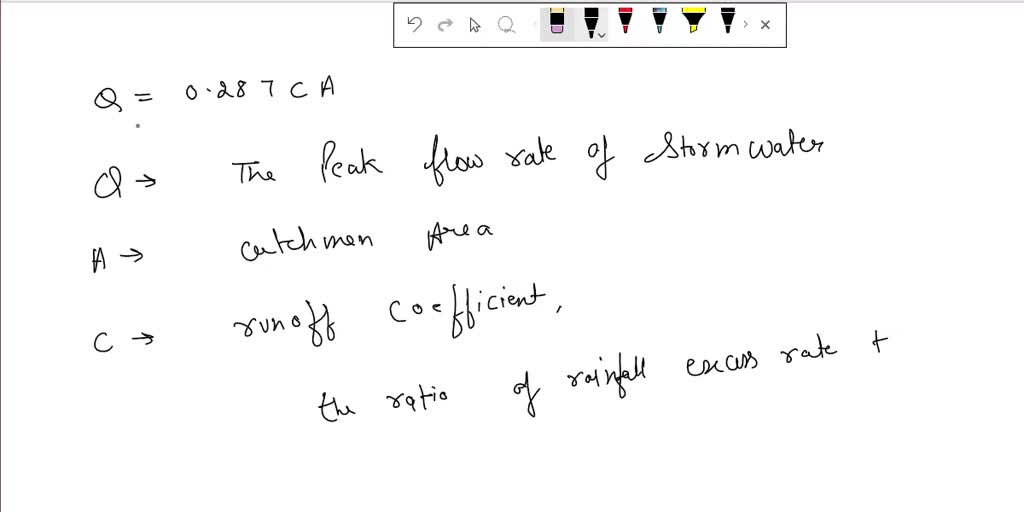 Q = 0.287 C A
Q → The Peak flow rate of Stormwater
A → Catchmen Area
C → runoff Coefficient,
the ratio of rainfall excess rate t